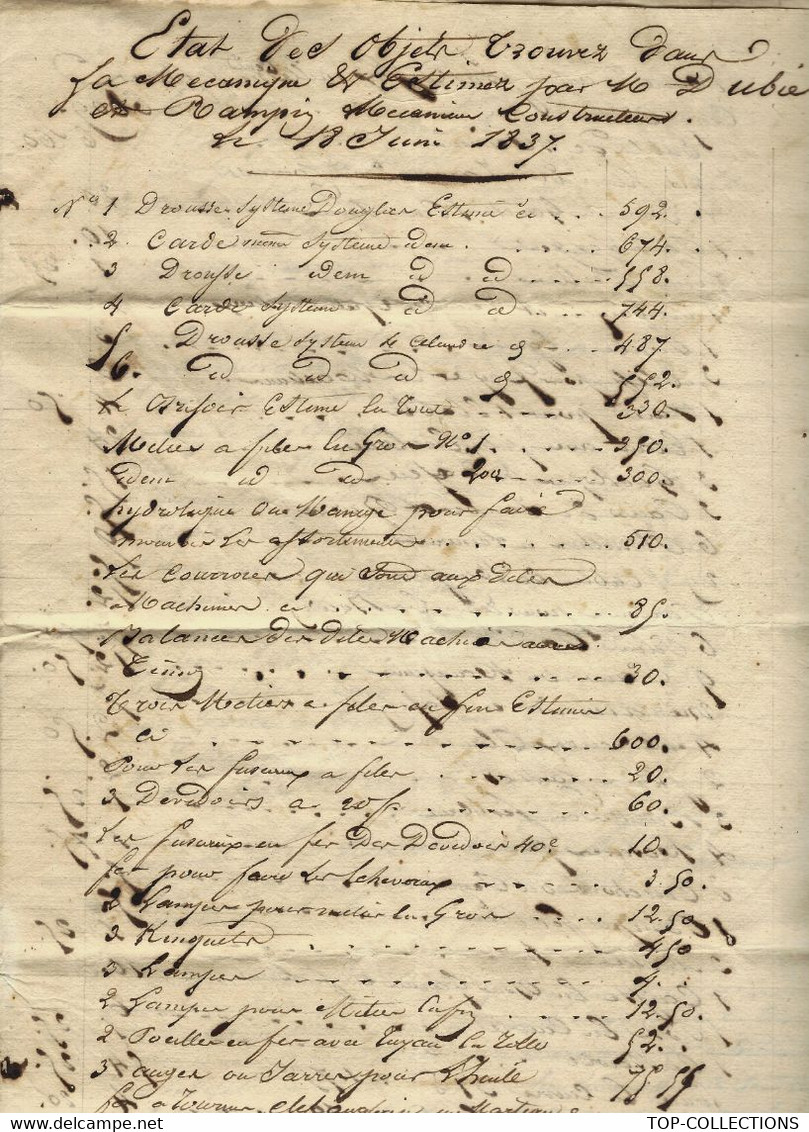 Etat Des Objets trouvez dans
La Mecanique & Estimez par M Dubié
et Rampin Mecanicien Constructeurs.
le 18 Juin 1837.
No 1 Drousse Systeme Douglier Estimé ci . . . 592.
2 Carde meme Systeme idem . . . 674.
3 Drousse idem id id . . . 558.
4 Carde Systeme id id . . . 744.
5 Drousse System de Calandre id . . . 487.
6. id id id id . . . 552.
Le Briseir Estimé en Tout . . . 330.
Metier a filer en Gros No 1. . . . 350.
idem id id 2 . . . 300.
hydrolique ou Manege pour faire
mouvoir les assortiments . . . 510.
Les Courroies qui Sont aux dites
Machines ci . . . 85.
Balances des dites Machines avec
. . . 30.
Trois Metiers a filer en fin Estimés
ci . . . 600.
Pour les fuseaux a filer . . . 20.
3 Devidoirs a 20 f. . . . 60.
Les fuseaux en fer Des Devidoir 40c 10.
fer pour faire les Echeveaux . . . 3.50.
2 Lampes pour metier en Gros . . . 12.50
3 Kinquets . . . 4 50
3 Lampes . . . 4.
2 Lampes pour Metier enfin . . . 12.50.
2 Poelles en fer avec Tuyau en Tolle 52.
3 auges ou Jarres pour L'huile 75 55
TOP-COLLECTIONS